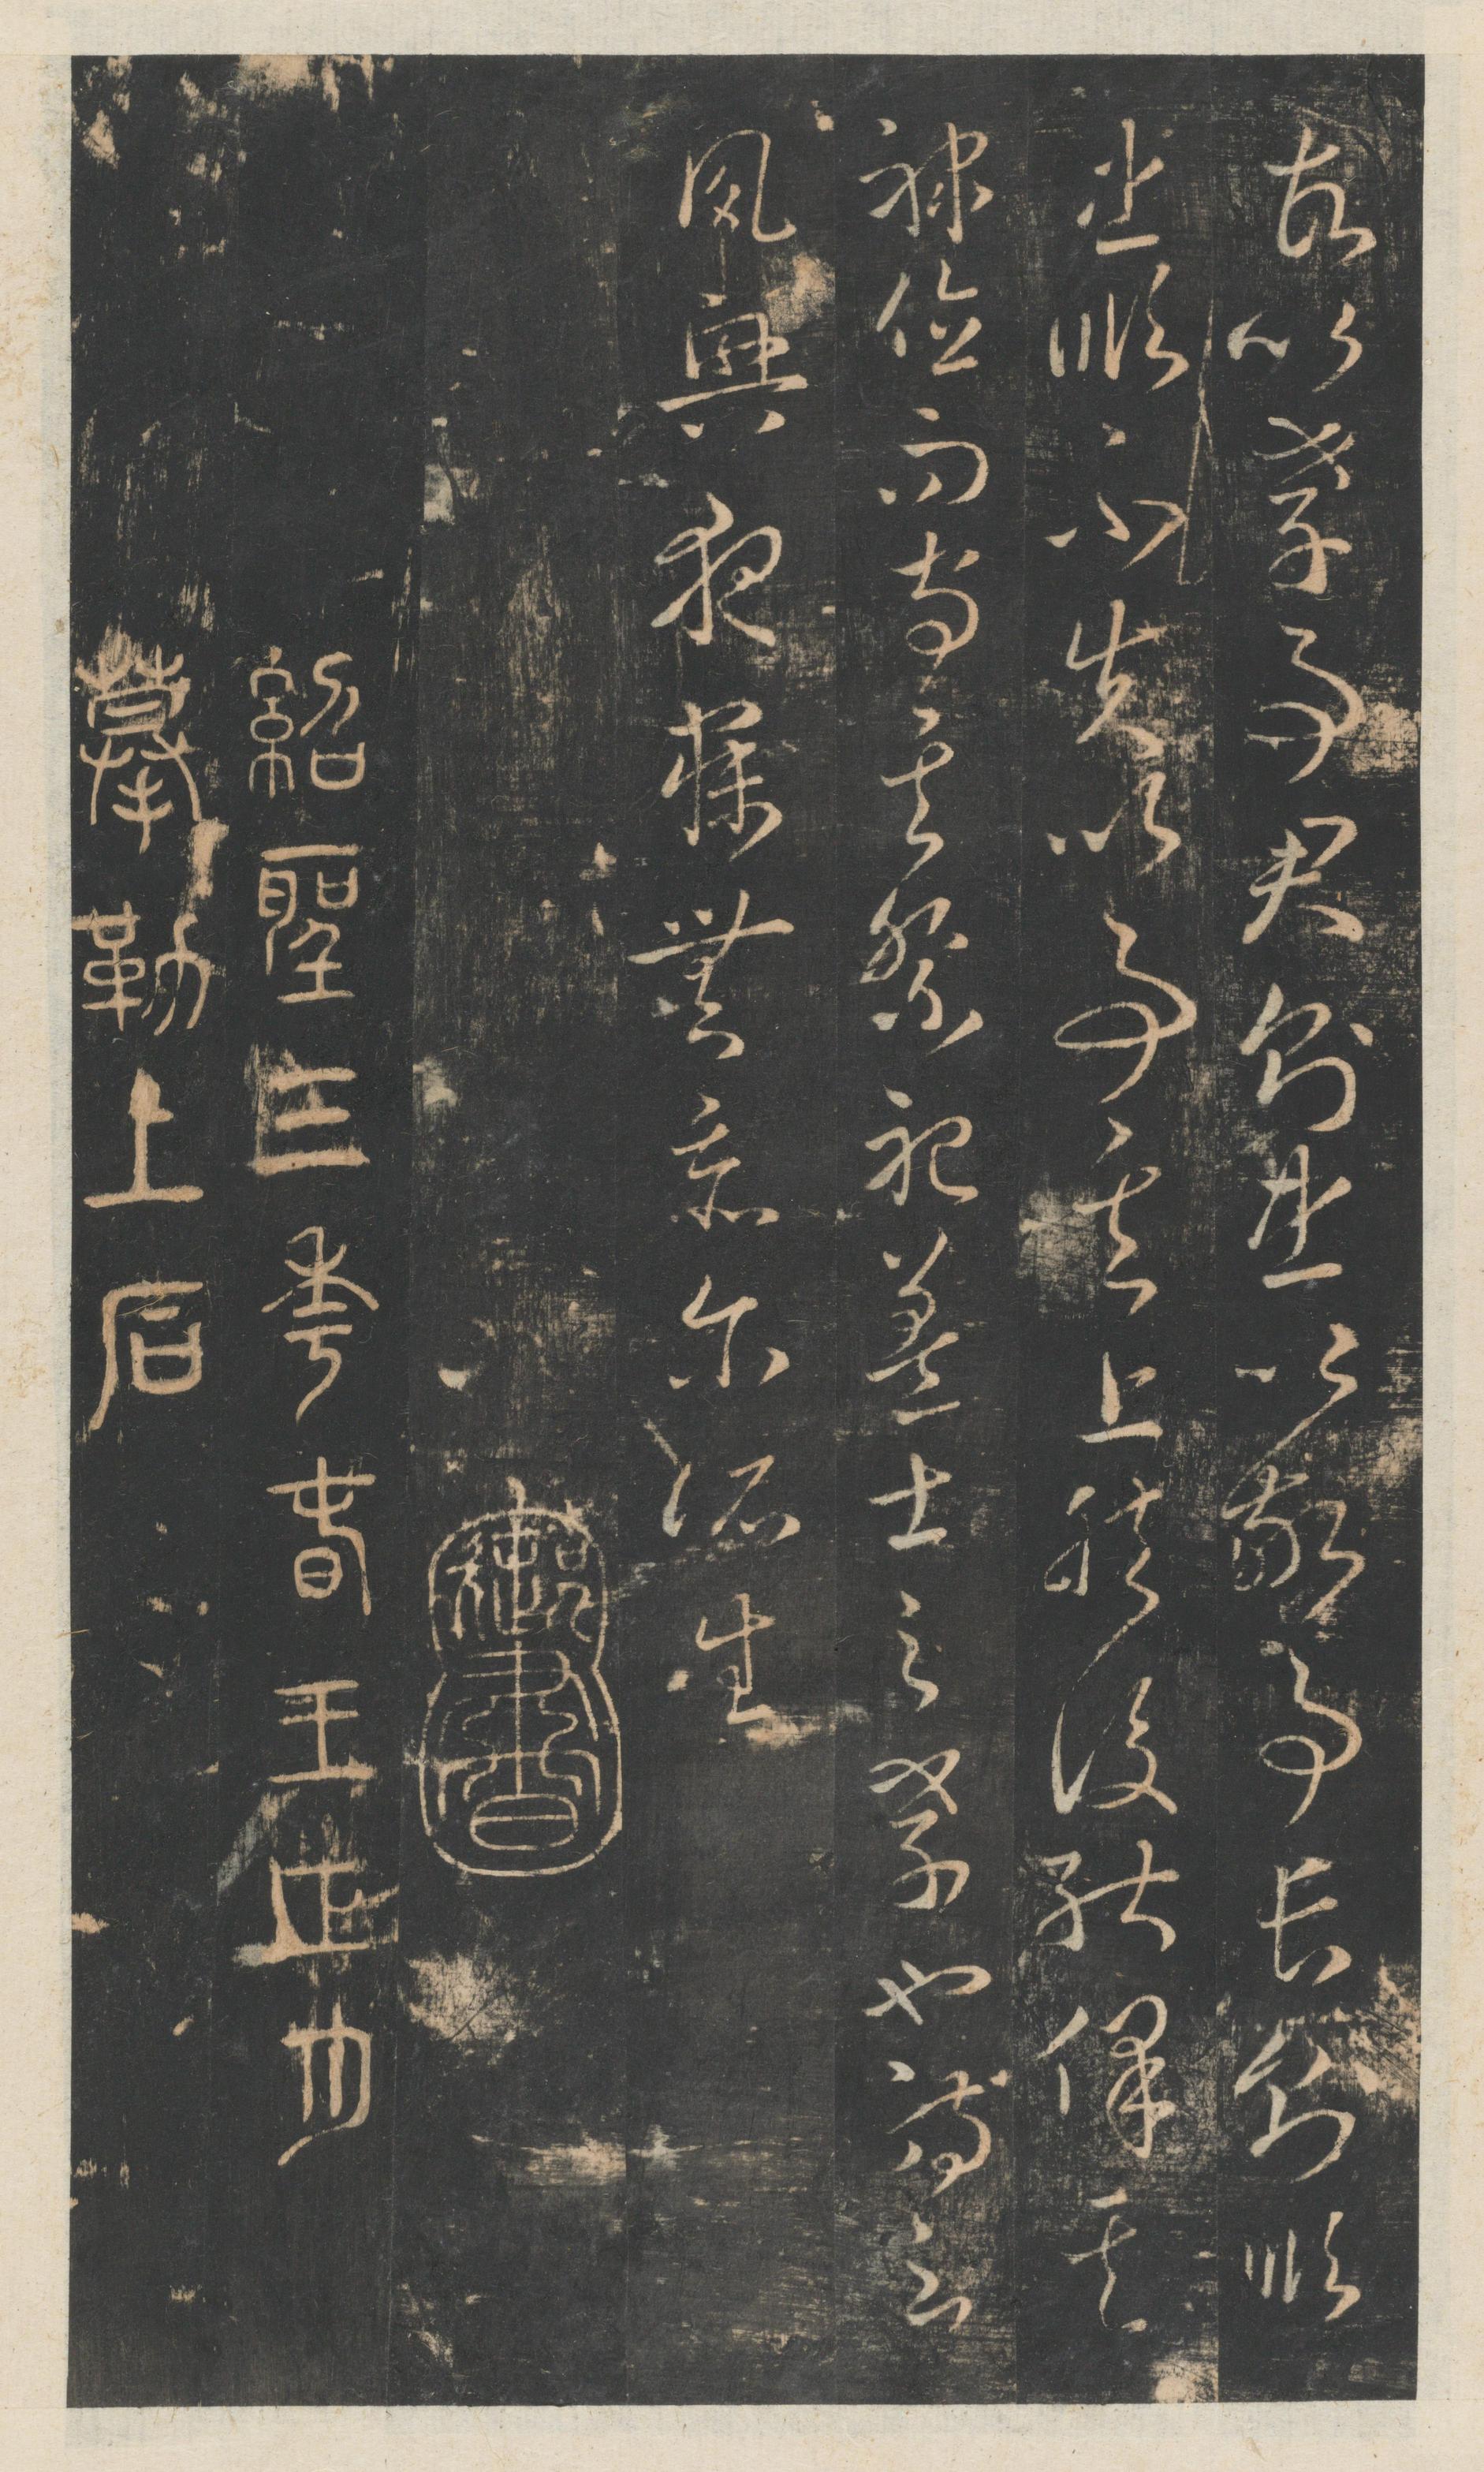 故以孝事君則忠以敬事長則順
忠順不失以事其上然後能保其
祿位而守其祭祀蓋士之孝也詩云
夙興夜寐無忝尔所生
紹聖三年春王正月
摹勒上石